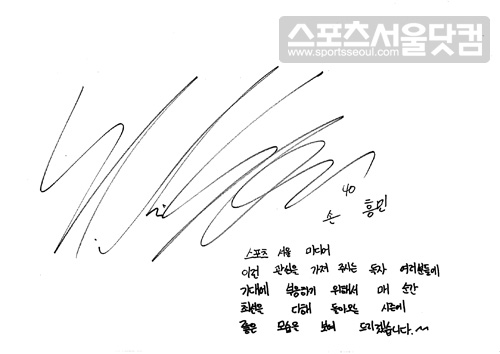 스포츠서울닷컴
www.sportsseoul.com
40
손 흥민
스포츠 서울 미디어
이런 관심을 가져 주시는 독자 여러분들에
기대에 부응하기 위해서 매 순간
최선을 다해 돌아오는 시즌에
좋은 모습을 보여 드리겠습니다.~